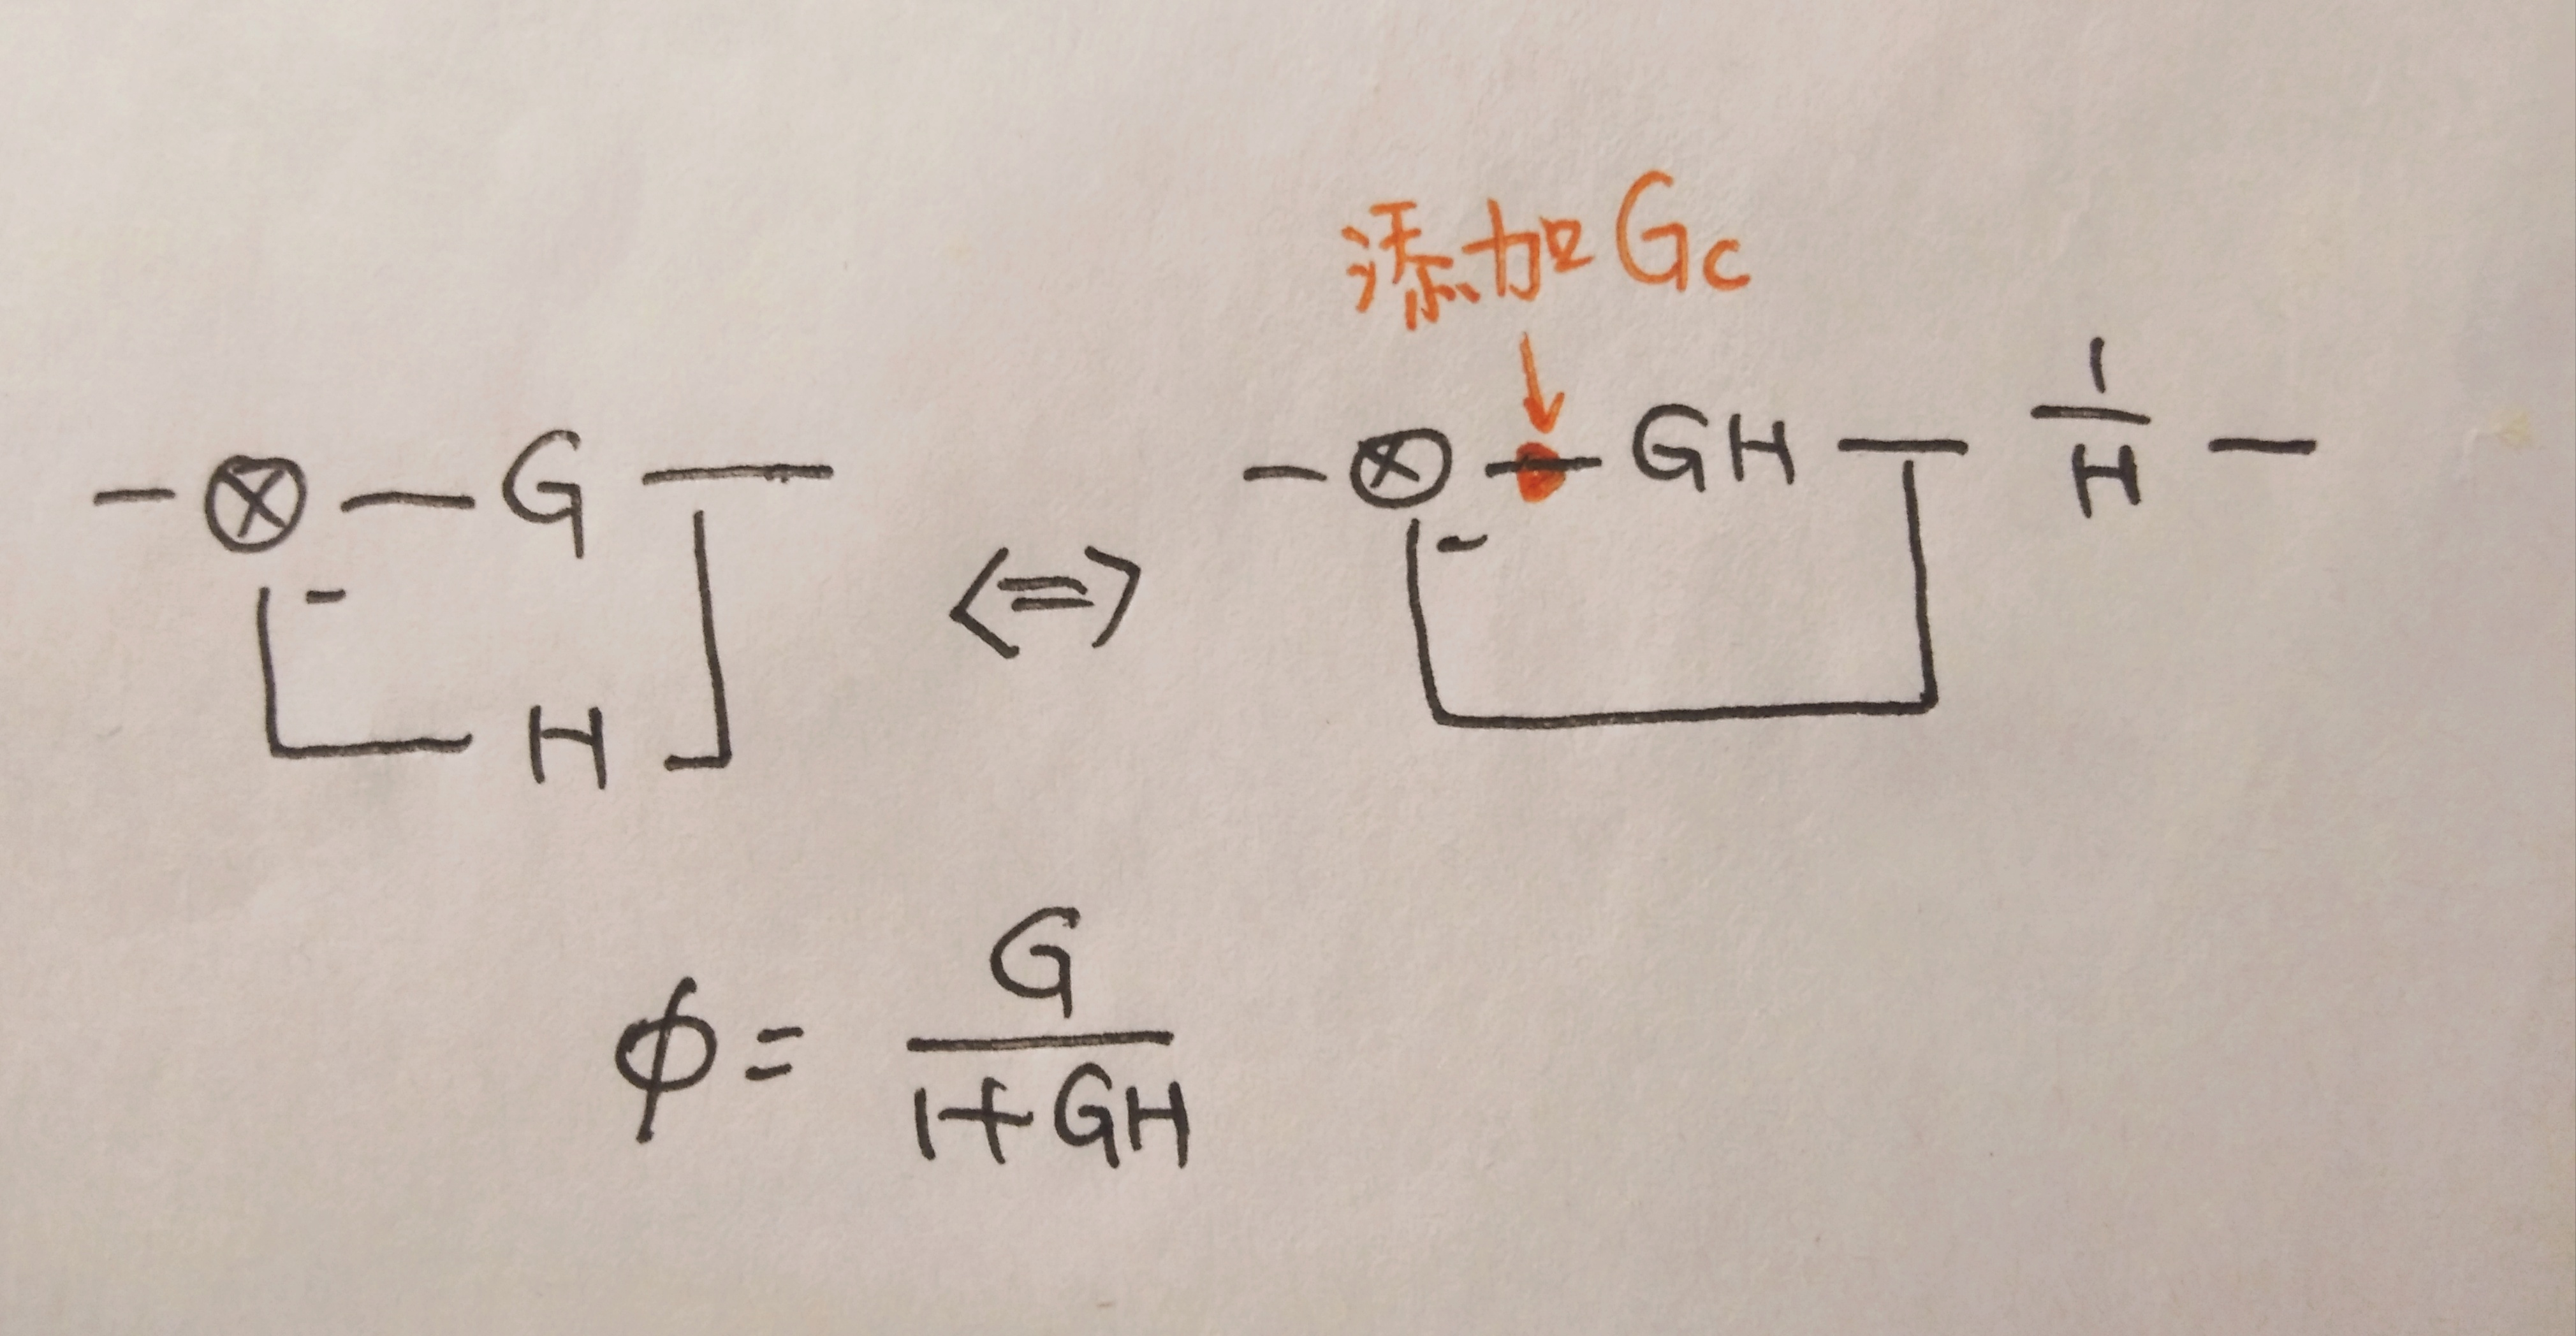 添加Gc
- ⊗ - G -
- ⊗ - GH - 1/H -
-
-
<=>
H
φ = G/(1+GH)